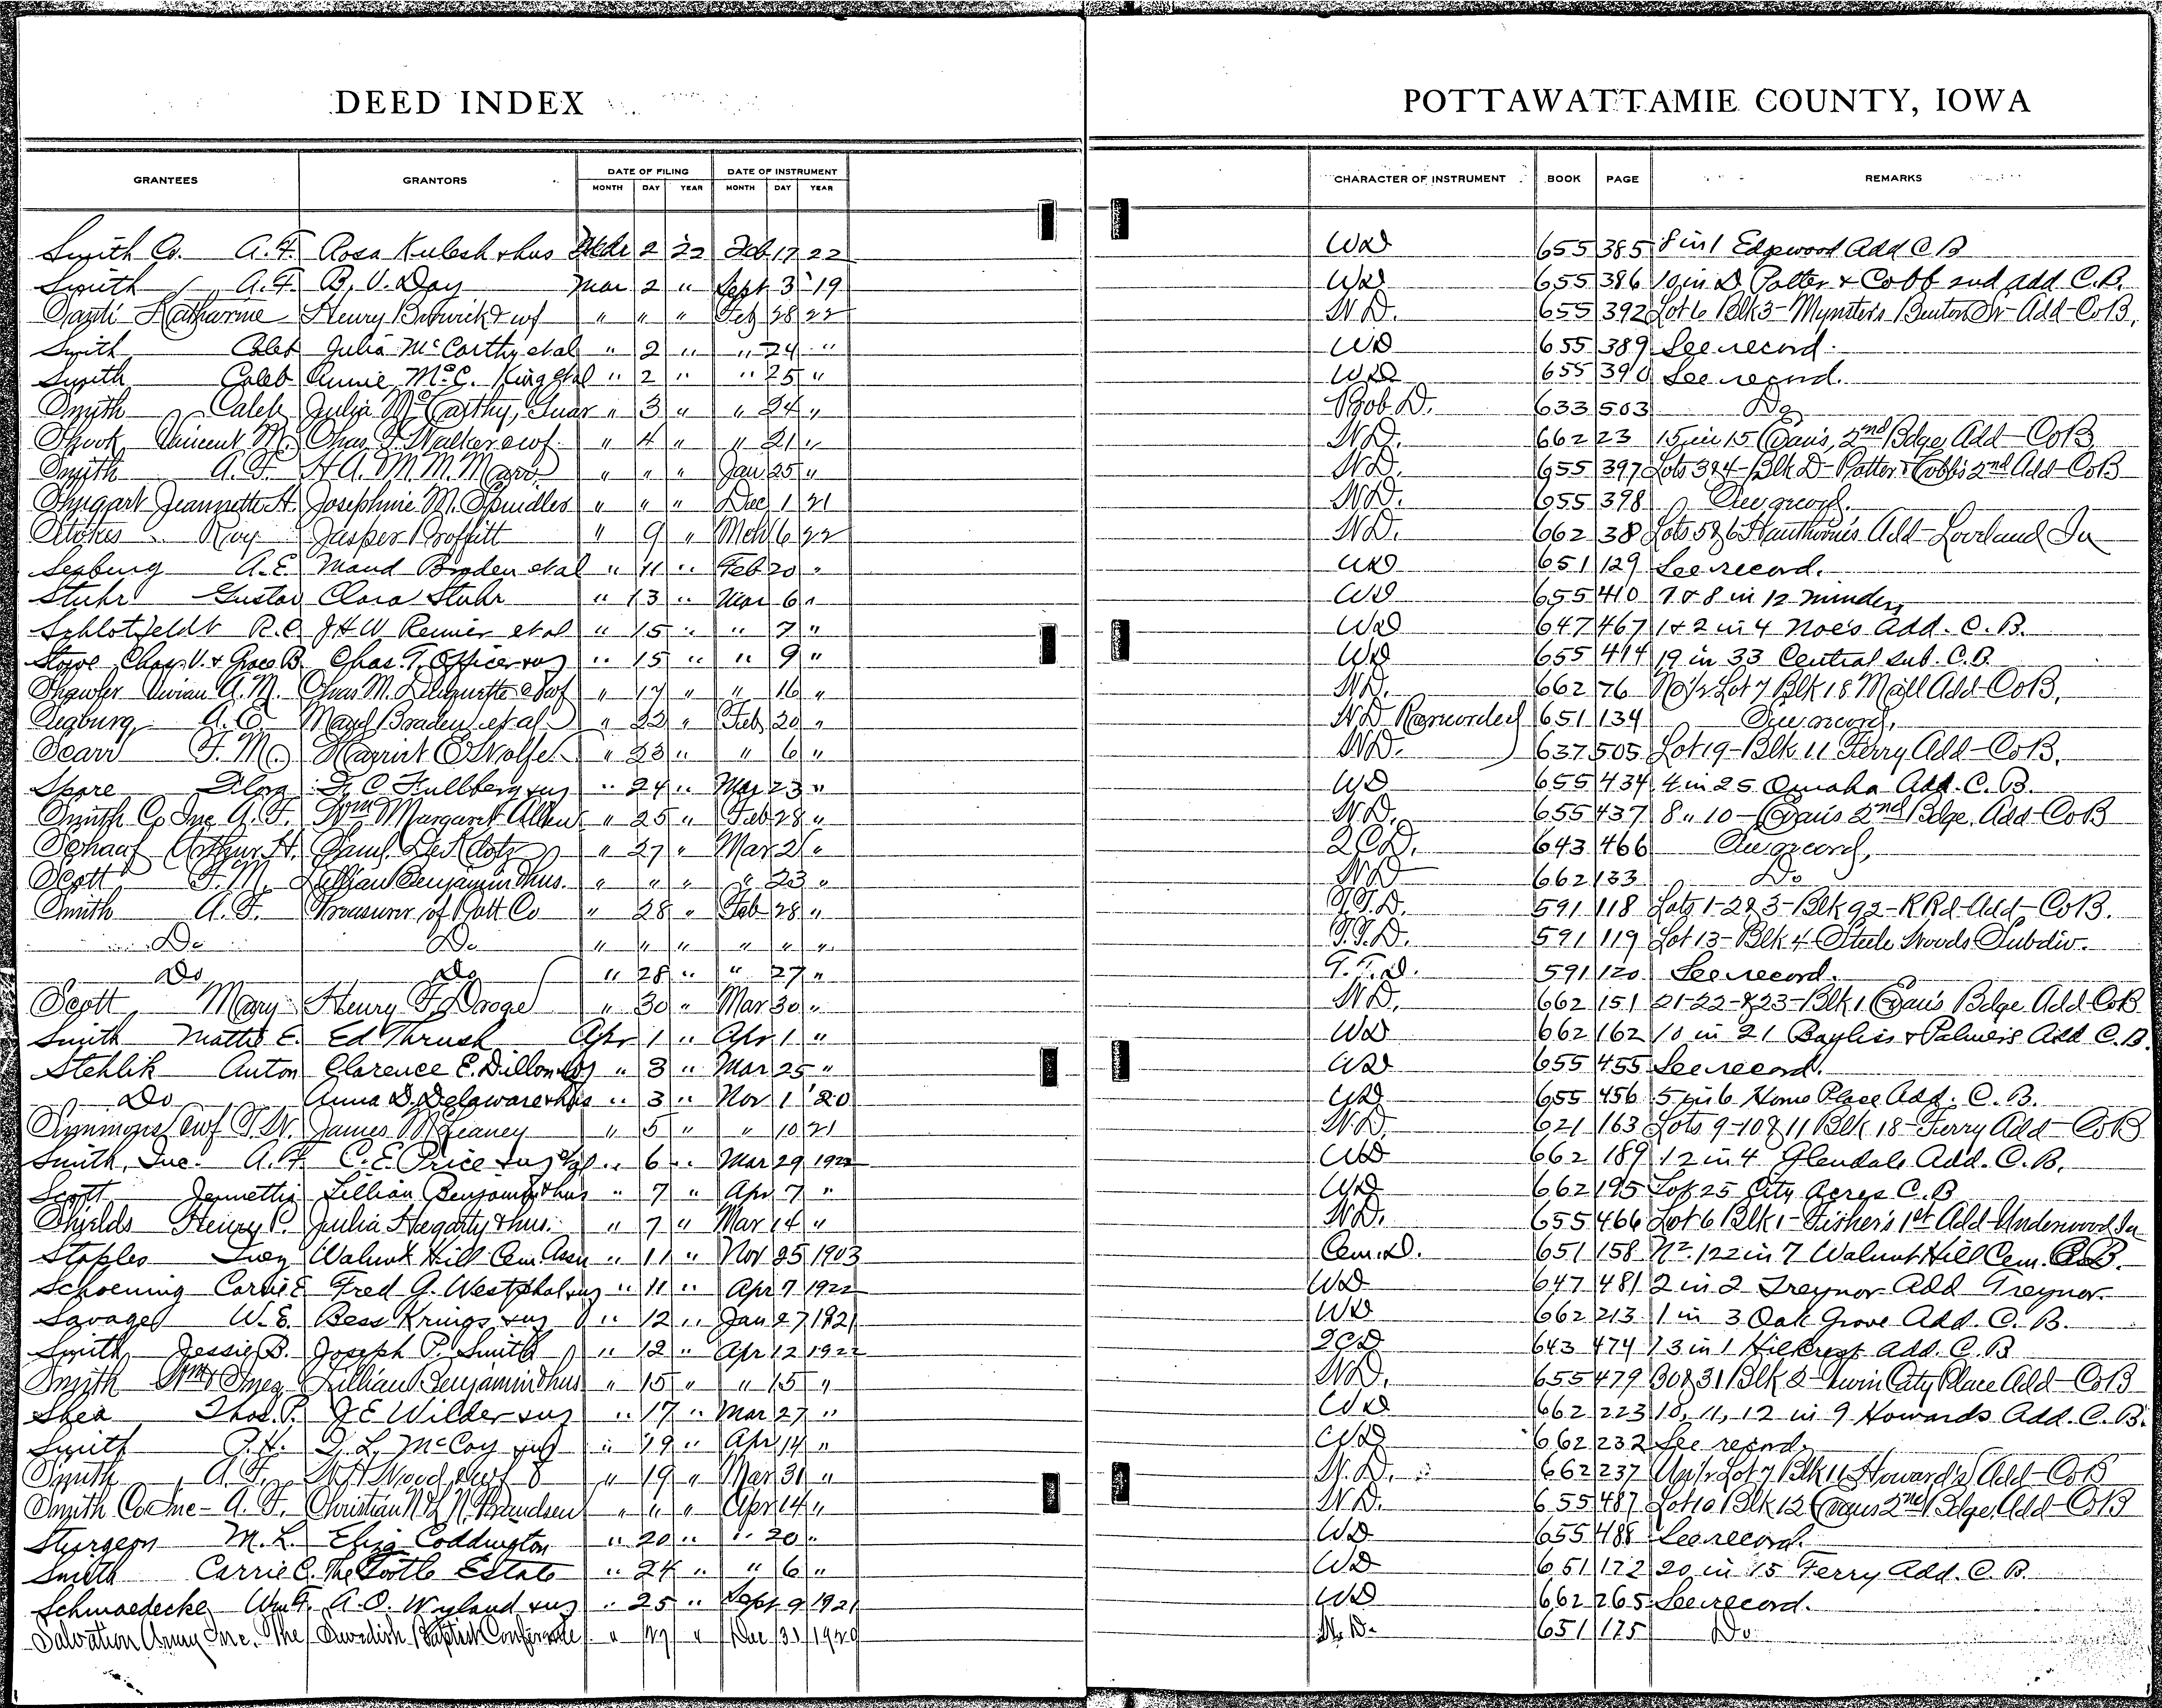 DEED INDEX
POTTAWATTAMIE COUNTY, IOWA
GRANTEES GRANTORS DATE OF FILING DATE OF INSTRUMENT CHARACTER OF INSTRUMENT BOOK PAGE REMARKS
MONTH DAY YEAR MONTH DAY YEAR
Smith Co. A. F. Rosa Kulesh & hus Mch 2 '22 Feb 17 22 WD 655 385 8 in 1 Edgwood Add C B
Smith A. F. B. V. Day Mar 2 " Sept 3 '19 WD 655 386 10 in D Potter & Cobb 2nd add C. B.
Katharine Henry & wf " " " Feb 28 22 W.D. 655 392 Lot 6 Blk 3 - Mynster's Add - Co B.
Smith Caleb Julia McCarthy et al " 2 " " 24 " WD 655 389 See record.
Smith Caleb Annie McC. King et al " 2 " " 25 " WD 655 390 See record.
Smith Caleb Julia McCarthy, Guar " 3 " " 24 " Prob. D. 633 503 Do
Shook Vincent M. Chas. F. Walker & wf. " 4 " " 21 " W.D. 662 23 15 in 15 Evans 2nd Bdge Add - Co B
Smith A. F. H. A. & M. M. " " " Jan 25 " W.D. 655 397 Lots 3 & 4 - Blk D - Potter & Cobb's 2nd Add - Co B
Shugart Jeannette H. Josephine M. Spindler " " " Dec 1 21 W.D. 655 398 See record.
Stokes Roy Jasper Proffitt " 9 " Mch 6 22 W.D. 662 38 Lots 5 & 6 Hawthorne's Add - Loveland Ia
Segburg A. E. Maud Braden et al " 11 " Feb 20 " WD 651 129 See record.
Stuhr Gustav Clara Stuhr " 13 " Mar 6 " WD 655 410 7 & 8 in 12 Minden,
Schlotfeldt R. C. J H W Remier et al " 15 " " 7 " WD 647 467 1 & 2 in 4 Noe's Add. C. B.
Stowe Chas. V. & Grace B. Chas. T. Officer & wf " 15 " " 9 " WD 655 414 19 in 33 Central Sub. C. B.
Vivian A. M. Chas M. & wf " 17 " " 16 " W.D. 662 76 N 1/2 Lot 7 Blk 18 Mall Add - Co B.
Segburg A. E. Maud Braden et al " 22 " Feb 20 " W D Rerecorded 651 134 See record.
Searr F. M. Harriet E Wolfe " 23 " " 6 " W.D. 637 505 Lot 19 - Blk 11 Ferry Add - Co B.
Spare Flora F. C. Hullberg & wf " 24 " Mar 23 " WD 655 434 4 in 25 Omaha Add. C. B.
Smith Co Inc A. F. Wm & Margaret Allen " 25 " Feb 28 " W.D. 655 437 8 " 10 - Evans 2nd Bdge. Add - Co B
Schauf Arthur H. Saml. De Klotz " 27 " Mar 21 " Q C D. 643 466 See record,
Scott F. M. Lillian Benjamin & hus. " " " " 23 " W.D 662 133 Do
Smith A. F. Treasurer of Pott Co " 28 " Feb 28 " T.T.D. 591 118 Lots 1-2 & 3 - Blk 92 - R Rd - Add - Co B.
Do Do " " " " " " T.T.D. 591 119 Lot 13 - Blk 4 Steele Woods Subdiv.
Do Do " 28 " " 27 " T.T.D. 591 120 See record.
Scott Mary Henry F. Droge " 30 " Mar 30 " W.D. 662 151 21-22 & 23 - Blk 1 Evans Bdge Add Co B
Smith Mattie E. Ed Thrush Apr 1 " Apr 1 " WD 662 162 10 in 21 Bayliss & Palmers Add C. B.
Stehlik Anton Clarence E. Dillon & wf " 3 " Mar 25 " WD 655 455 See record.
Do Anna D. Delaware & hus " 3 " Nov 1 '20 WD 655 456 5 in 6 Home Place Add. C. B.
& wf James " 5 " " 10 21 W.D. 621 163 Lots 9-10 & 11 Blk 18 - Ferry Add - Co B
Smith, Inc. A. F. C. E. Price & wf et al " 6 " Mar 29 1922 WD 662 189 12 in 4 Glendale Add. C. B.
Scott Jennettia Lillian Benjamin & hus " 7 " Apr 7 " WD 662 195 Lot 25 City Acres C. B
Shields Henry P. Julia Hegarty & hus. " 7 " Mar 14 " W.D. 655 466 Lot 6 Blk 1 - Fisher's 1st Add - Underwood Ia
Staples Ivey Walnut Hill Cem. Assn " 11 " Nov 25 1903 Cem. D. 651 158 N 1/2 122 in 7 Walnut Hill Cem. C. B.
Schoening Carrie E Fred G. Westphal & wf " 11 " Apr 7 1922 WD 647 481 2 in 2 Treynor Add Treynor
Savage W. E. Bess Krings & wf " 12 " Jan 27 1921 WD 662 213 1 in 3 Oak Grove Add. C. B.
Smith Jessie B. Joseph P. Smith " 12 " Apr 12 1922 QCD 643 474 13 in 1 Hillcrest Add. C. B
Smith Wm & Inez Lillian Benjamin & hus " 15 " " 15 " W.D. 655 479 30 & 31 Blk 2 - Twin City Place Add - Co B
Shea Thos. P. J E Wilder & wf " 17 " Mar 27 " WD 662 223 10, 11, 12 in 9 Howards Add. C. B.
Smith D. L. McCoy & wf " 19 " Apr 14 " WD 662 232 See record.
Smith A. F. W H Wood & wf " 19 " Mar 31 " W.D. 662 237 Lot 7 Blk 11 Howard's Add - Co B
Smith Co Inc - A. F. Christian N & N. Knudsen " " " Apr 14 " W.D. 655 487 Lot 10 Blk 12 Evans 2nd Bdge. Add - Co B
Sturgeon M. L. Eliza Coddington " 20 " " 20 " WD 655 488 See record.
Smith Carrie C. The Tootle Estate " 24 " " 6 " WD 651 172 20 in 15 Ferry Add. C. B.
Schmaedecke Wm F. A. O. Wyland & wf " 25 " Sept 9 1921 WD 662 265 See record.
Salvation Army Inc. The Swedish Baptist Conference " 27 " Dec 31 1920 W.D. 651 175 Do